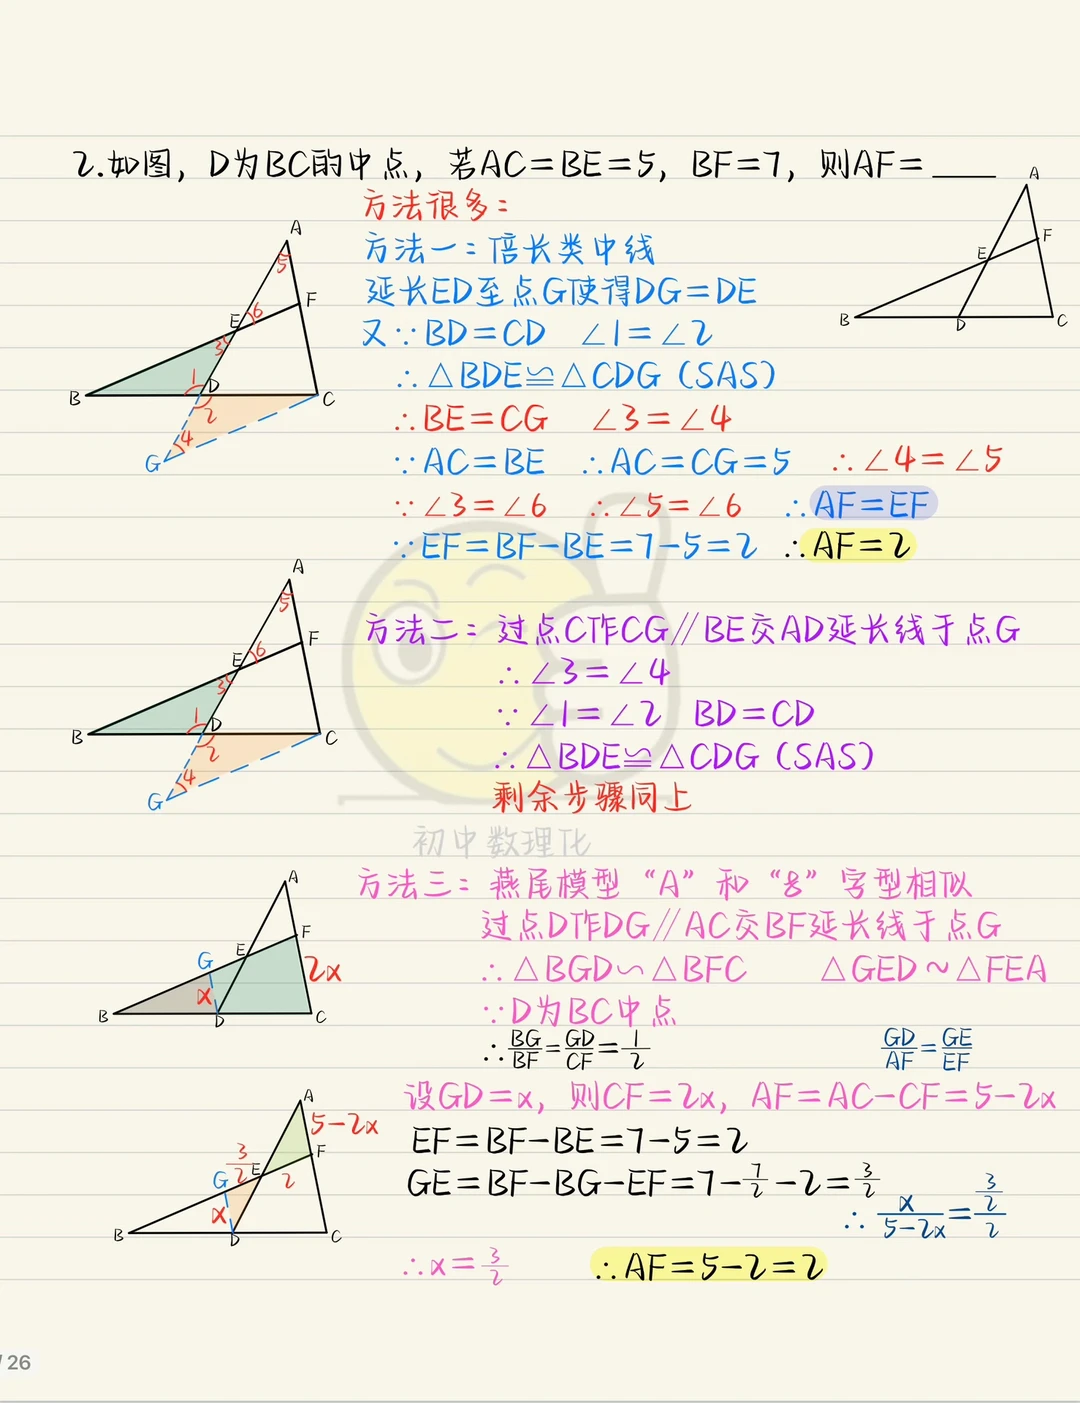 2.如图，D为BC的中点，若AC=BE=5，BF=7，则AF=____
方法很多：
方法一：倍长类中线
延长ED至点G使得DG=DE
又∵BD=CD ∠1=∠2
∴△BDE≌△CDG（SAS）
∴BE=CG ∠3=∠4
∵AC=BE ∴AC=CG=5 ∴∠4=∠5
∵∠3=∠6 ∴∠5=∠6 ∴AF=EF
∵EF=BF-BE=7-5=2 ∴AF=2
A
F
E
B
D
C
A
5
F
E
6
3
B
1
D
C
2
4
G
方法二：过点C作CG∥BE交AD延长线于点G
∴∠3=∠4
∵∠1=∠2 BD=CD
∴△BDE≌△CDG（SAS）
剩余步骤同上
A
5
F
E
6
3
B
1
D
C
2
4
G
初中数理化
方法三：燕尾模型“A”和“8”字型相似
过点D作DG∥AC交BF延长线于点G
∴△BGD∽△BFC △GED~△FEA
∵D为BC中点
∴BG/BF=GD/CF=1/2 GD/AF=GE/EF
A
F
E
G
2x
x
B
D
C
设GD=x，则CF=2x，AF=AC-CF=5-2x
EF=BF-BE=7-5=2
GE=BF-BG-EF=7-7/2-2=3/2
∴x/(5-2x)=(3/2)/2
∴x=3/2 ∴AF=5-2=2
A
5-2x
F
3/2
E
G
2
x
B
D
C
/ 26